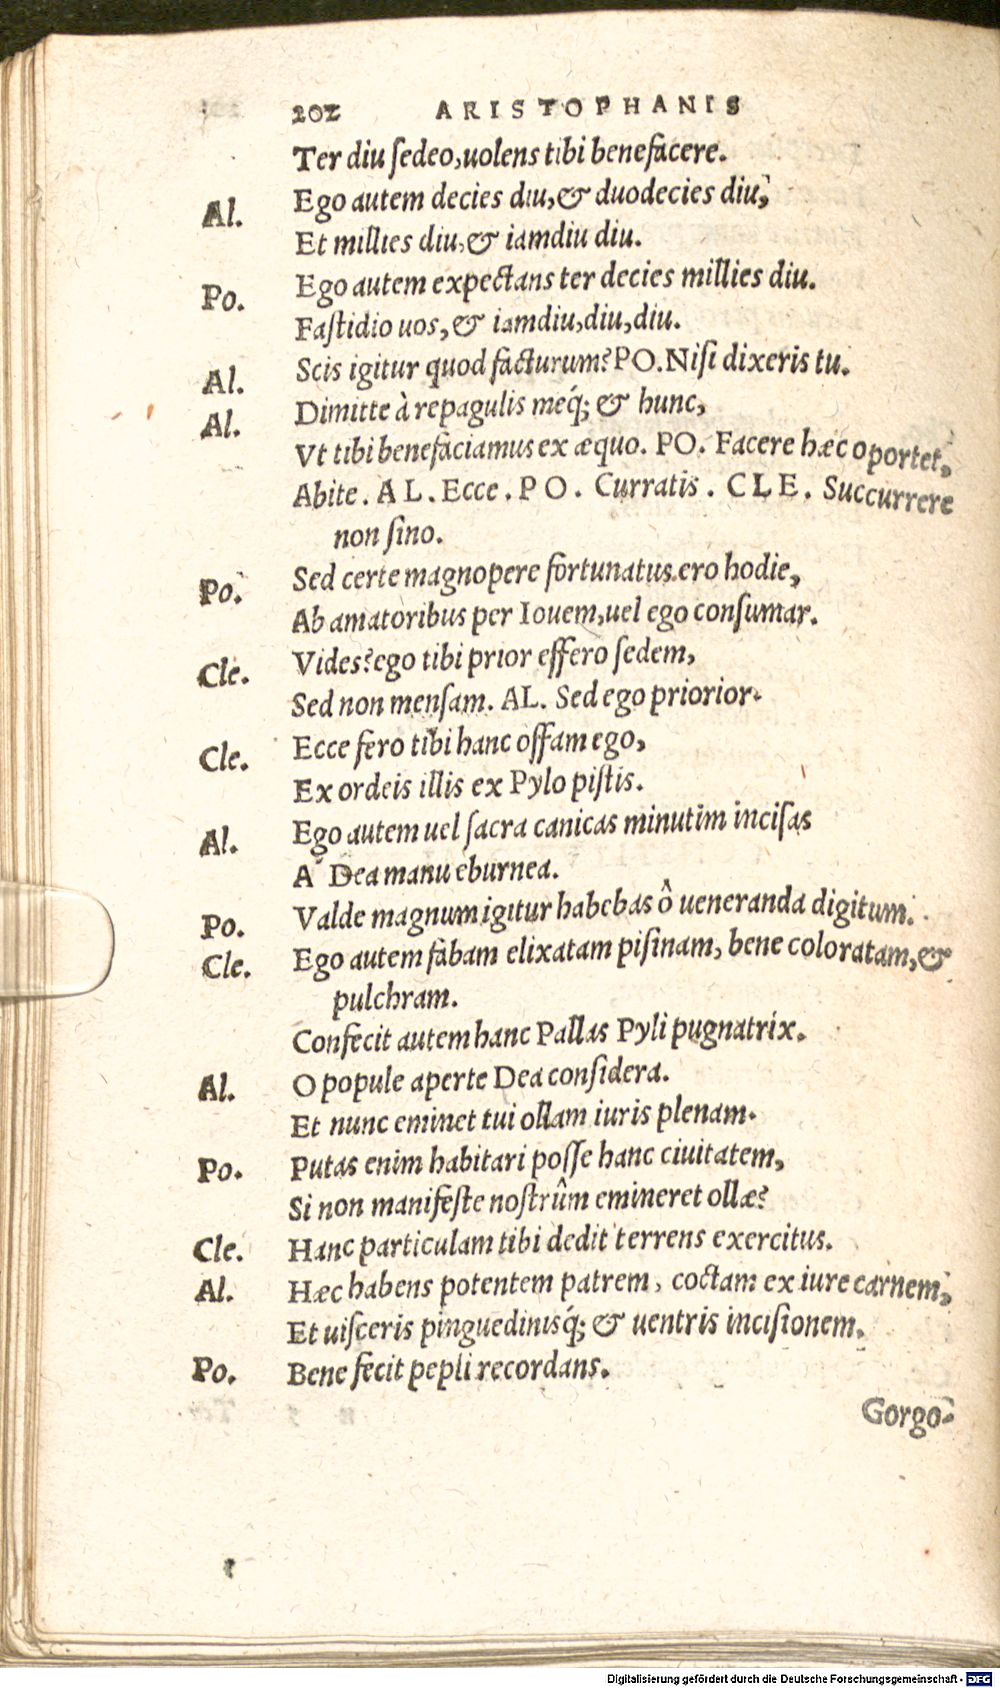 202 ARISTOPHANIS
Ter diu ſedeo,uolens tibi benefacere.
Al. Ego autem decies diu,& duodecies diu,
Et millies diu,& iamdiu diu.
Po. Ego autem expectans ter decies millies diu.
Faſtidio uos,& iamdiu,diu,diu.
Al. Scis igitur quod facturum?PO.Niſi dixeris tu.
Al. Dimitte à repagulis meq́; & hunc,
Vt tibi benefaciamus ex æquo. PO. Facere hæc oportet,
Abite. AL. Ecce. PO. Curratis. CLE. Succurrere
non ſino.
Po. Sed certe magnopere fortunatus ero hodie,
Ab amatoribus per Iouem,uel ego conſumar.
Cle. Vides?ego tibi prior effero ſedem,
Sed non menſam. AL. Sed ego priorior.
Cle. Ecce fero tibi hanc offam ego,
Ex ordeis illis ex Pylo piſtis.
Al. Ego autem uel ſacra canicas minutim inciſas
A Dea manu eburnea.
Po. Valde magnum igitur habebas ô ueneranda digitum.
Cle. Ego autem fabam elixatam piſinam, bene coloratam,&
pulchram.
Confecit autem hanc Pallas Pyli pugnatrix.
Al. O popule aperte Dea conſidera.
Et nunc eminet tui ollam iuris plenam.
Po. Putas enim habitari poſſe hanc ciuitatem,
Si non manifeſte noſtrûm emineret ollæ?
Cle. Hanc particulam tibi dedit terrens exercitus.
Al. Hæc habens potentem patrem, coctam ex iure carnem,
Et uiſceris pinguedinisq́; & uentris inciſionem.
Po. Bene fecit pepli recordans.
Gorgo-
Digitalisierung gefördert durch die Deutsche Forschungsgemeinschaft - DFG